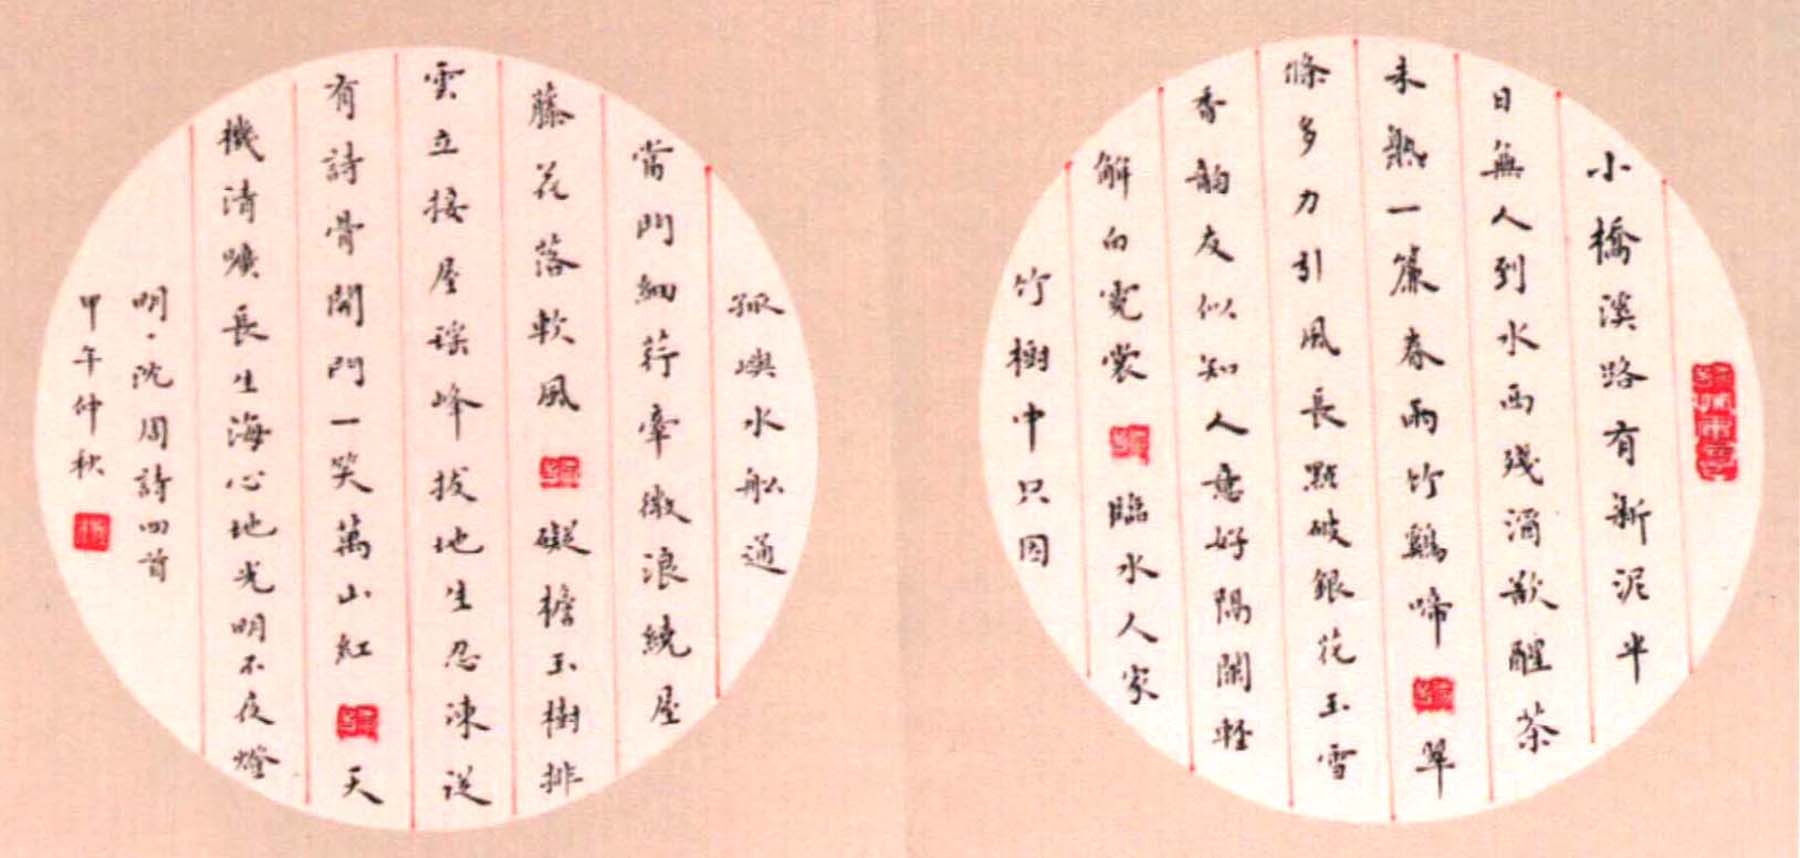 小橋溪路有新泥半
日無人到水西殘酒欲醒茶
未熟一簾春雨竹鷄啼翠
條多力引風長點破銀花玉雪
香韵友似知人意好隔闌輕
解白霓裳臨水人家
竹樹中只因
孤嶼水船通
當門細荇牽微浪繞屋
藤花落軟風礙檐玉樹排
雲立接屋瑤峰拔地生忍凍送
有詩骨開門一笑萬山紅天
機清曠長生海心地光明不夜燈
明·沈周詩四首
甲午仲秋